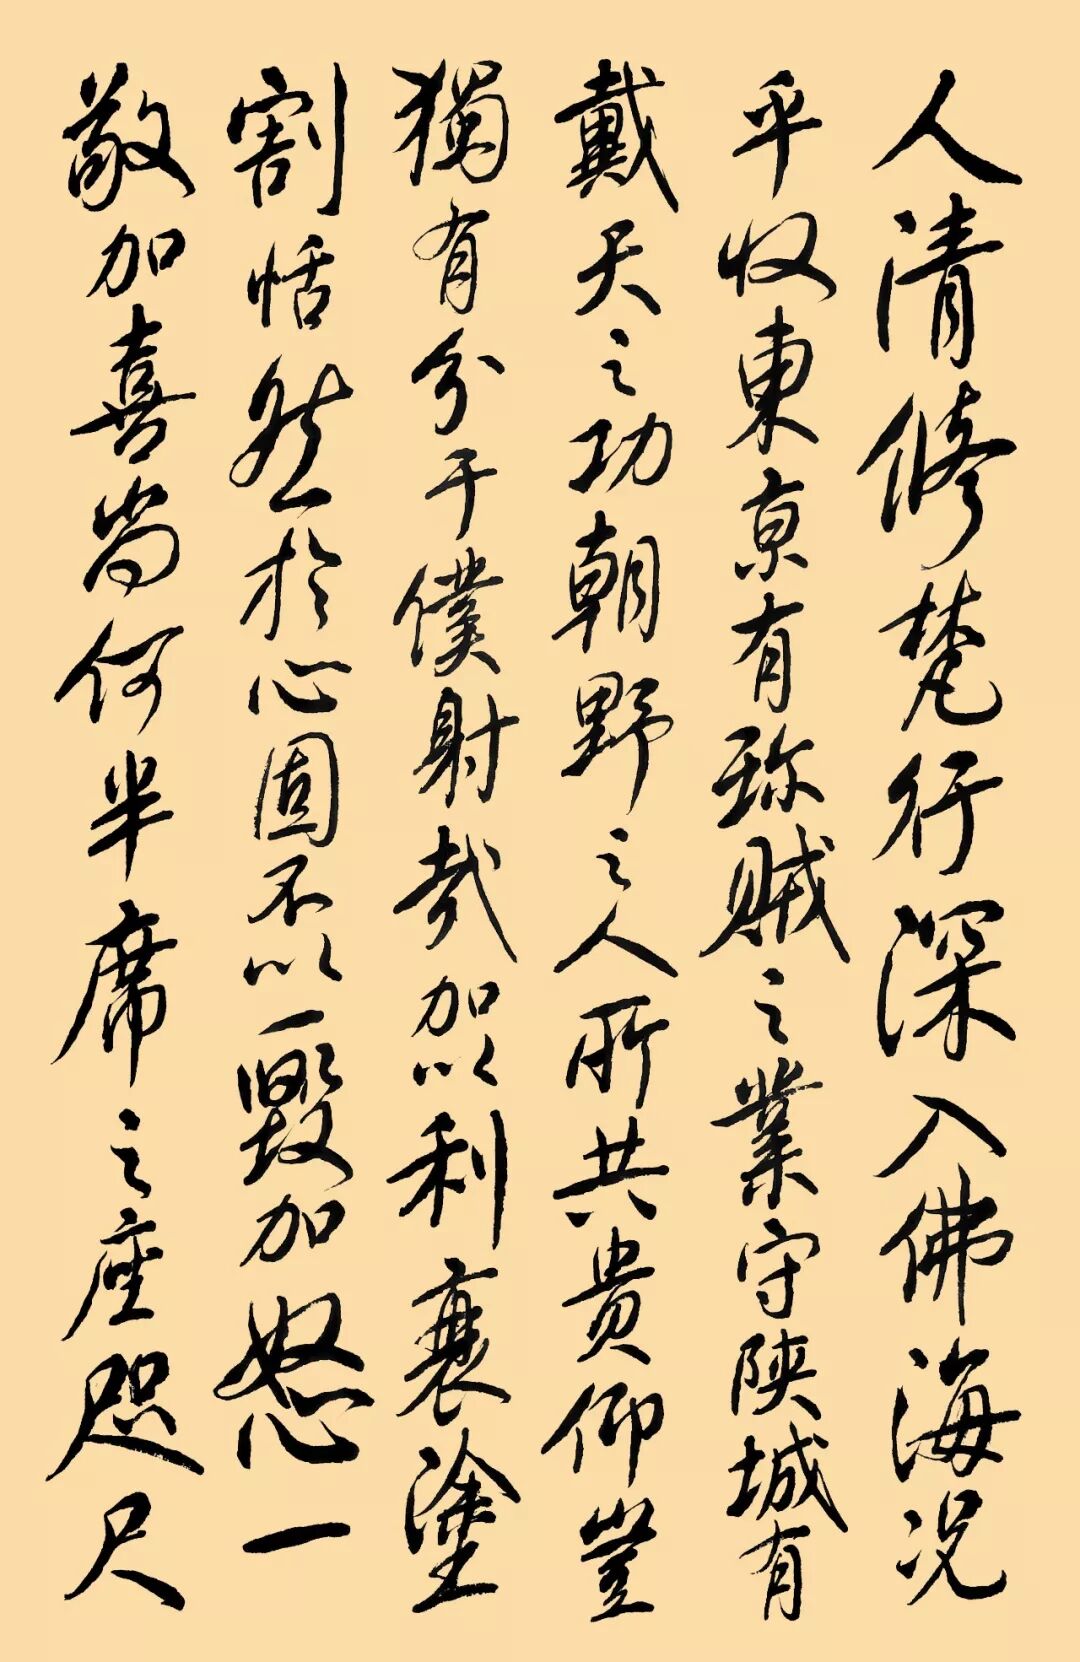 人清修梵行深入佛海况
乎收東京有殄賊之業守陝城有
戴天之功朝野之人所共貴仰豈
獨有分于僕射哉加以利衰塗
割恬然於心固不以一毀加怒一
敬加喜尚何半席之座咫尺